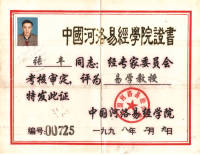 中國河洛易經學院證書
張平同志：经专家委员会
考核审定，评为 易学教授
特发此证
中国河洛易经学院
编号:00725 一九九八年 月 日